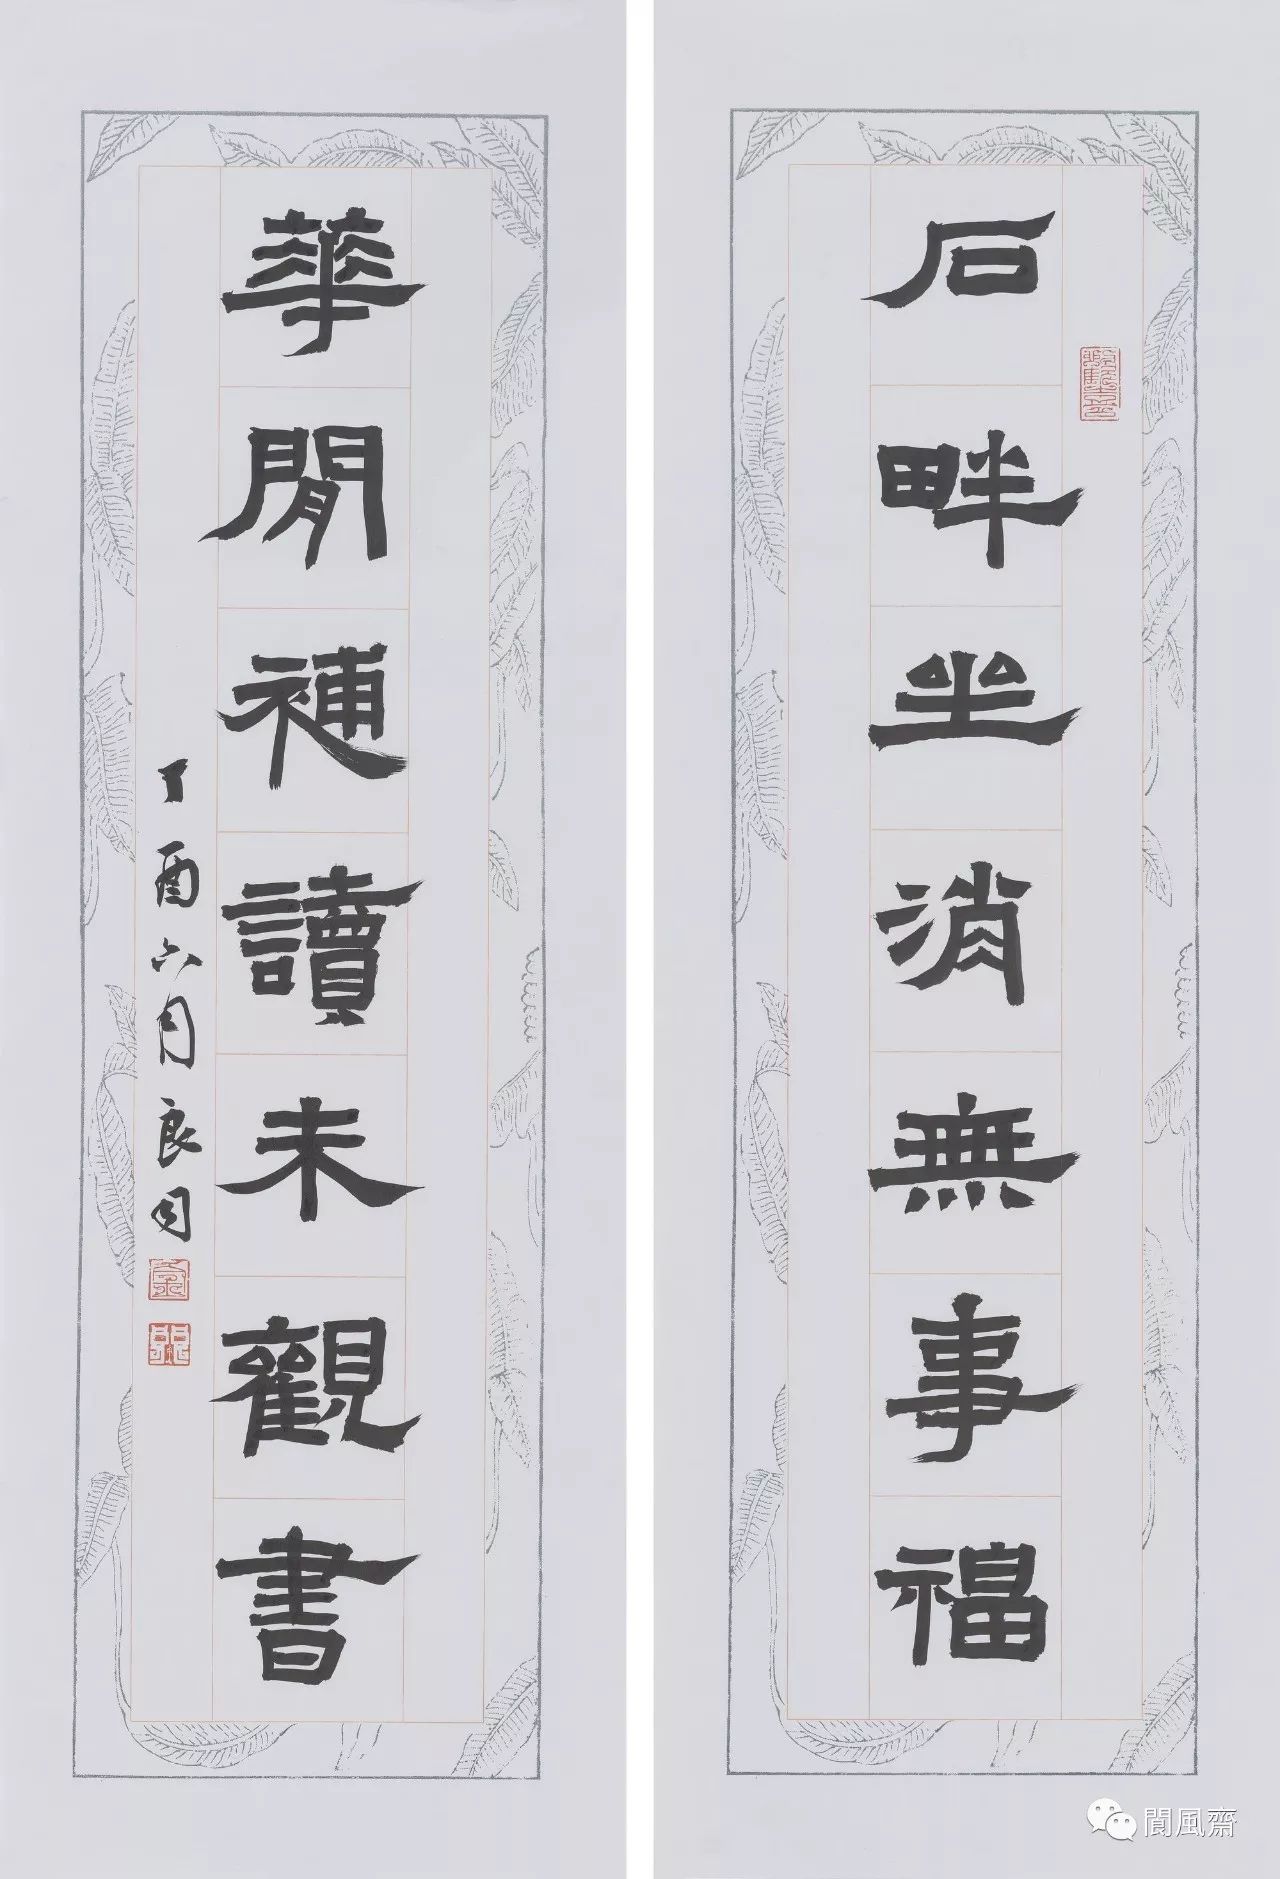 石畔坐消無事福
華閒補讀未觀書
丁酉六月良
閬風齋